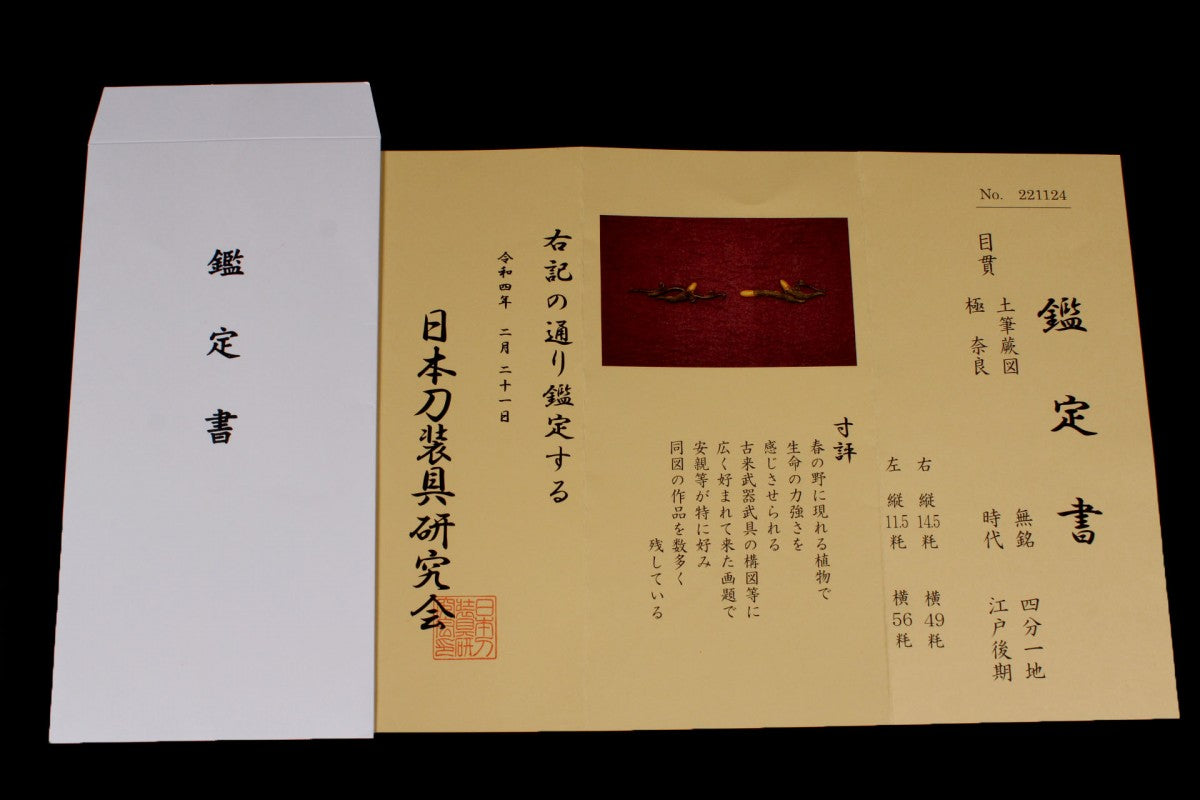 鑑定書
No. 221124
鑑定書
目貫
土筆蕨図
極 奈良
無銘 四分一地
時代 江戸後期
右 縦14.5粍 横49粍
左 縦11.5粍 横56粍
寸評
春の野に現れる植物で
生命の力強さを
感じさせられる
古来武器武具の構図等に
広く好まれて来た画題で
安親等が特に好み
同図の作品を数多く
残している
右記の通り鑑定する
令和四年 二月 二十一日
日本刀装具研究会
日本刀
装具研